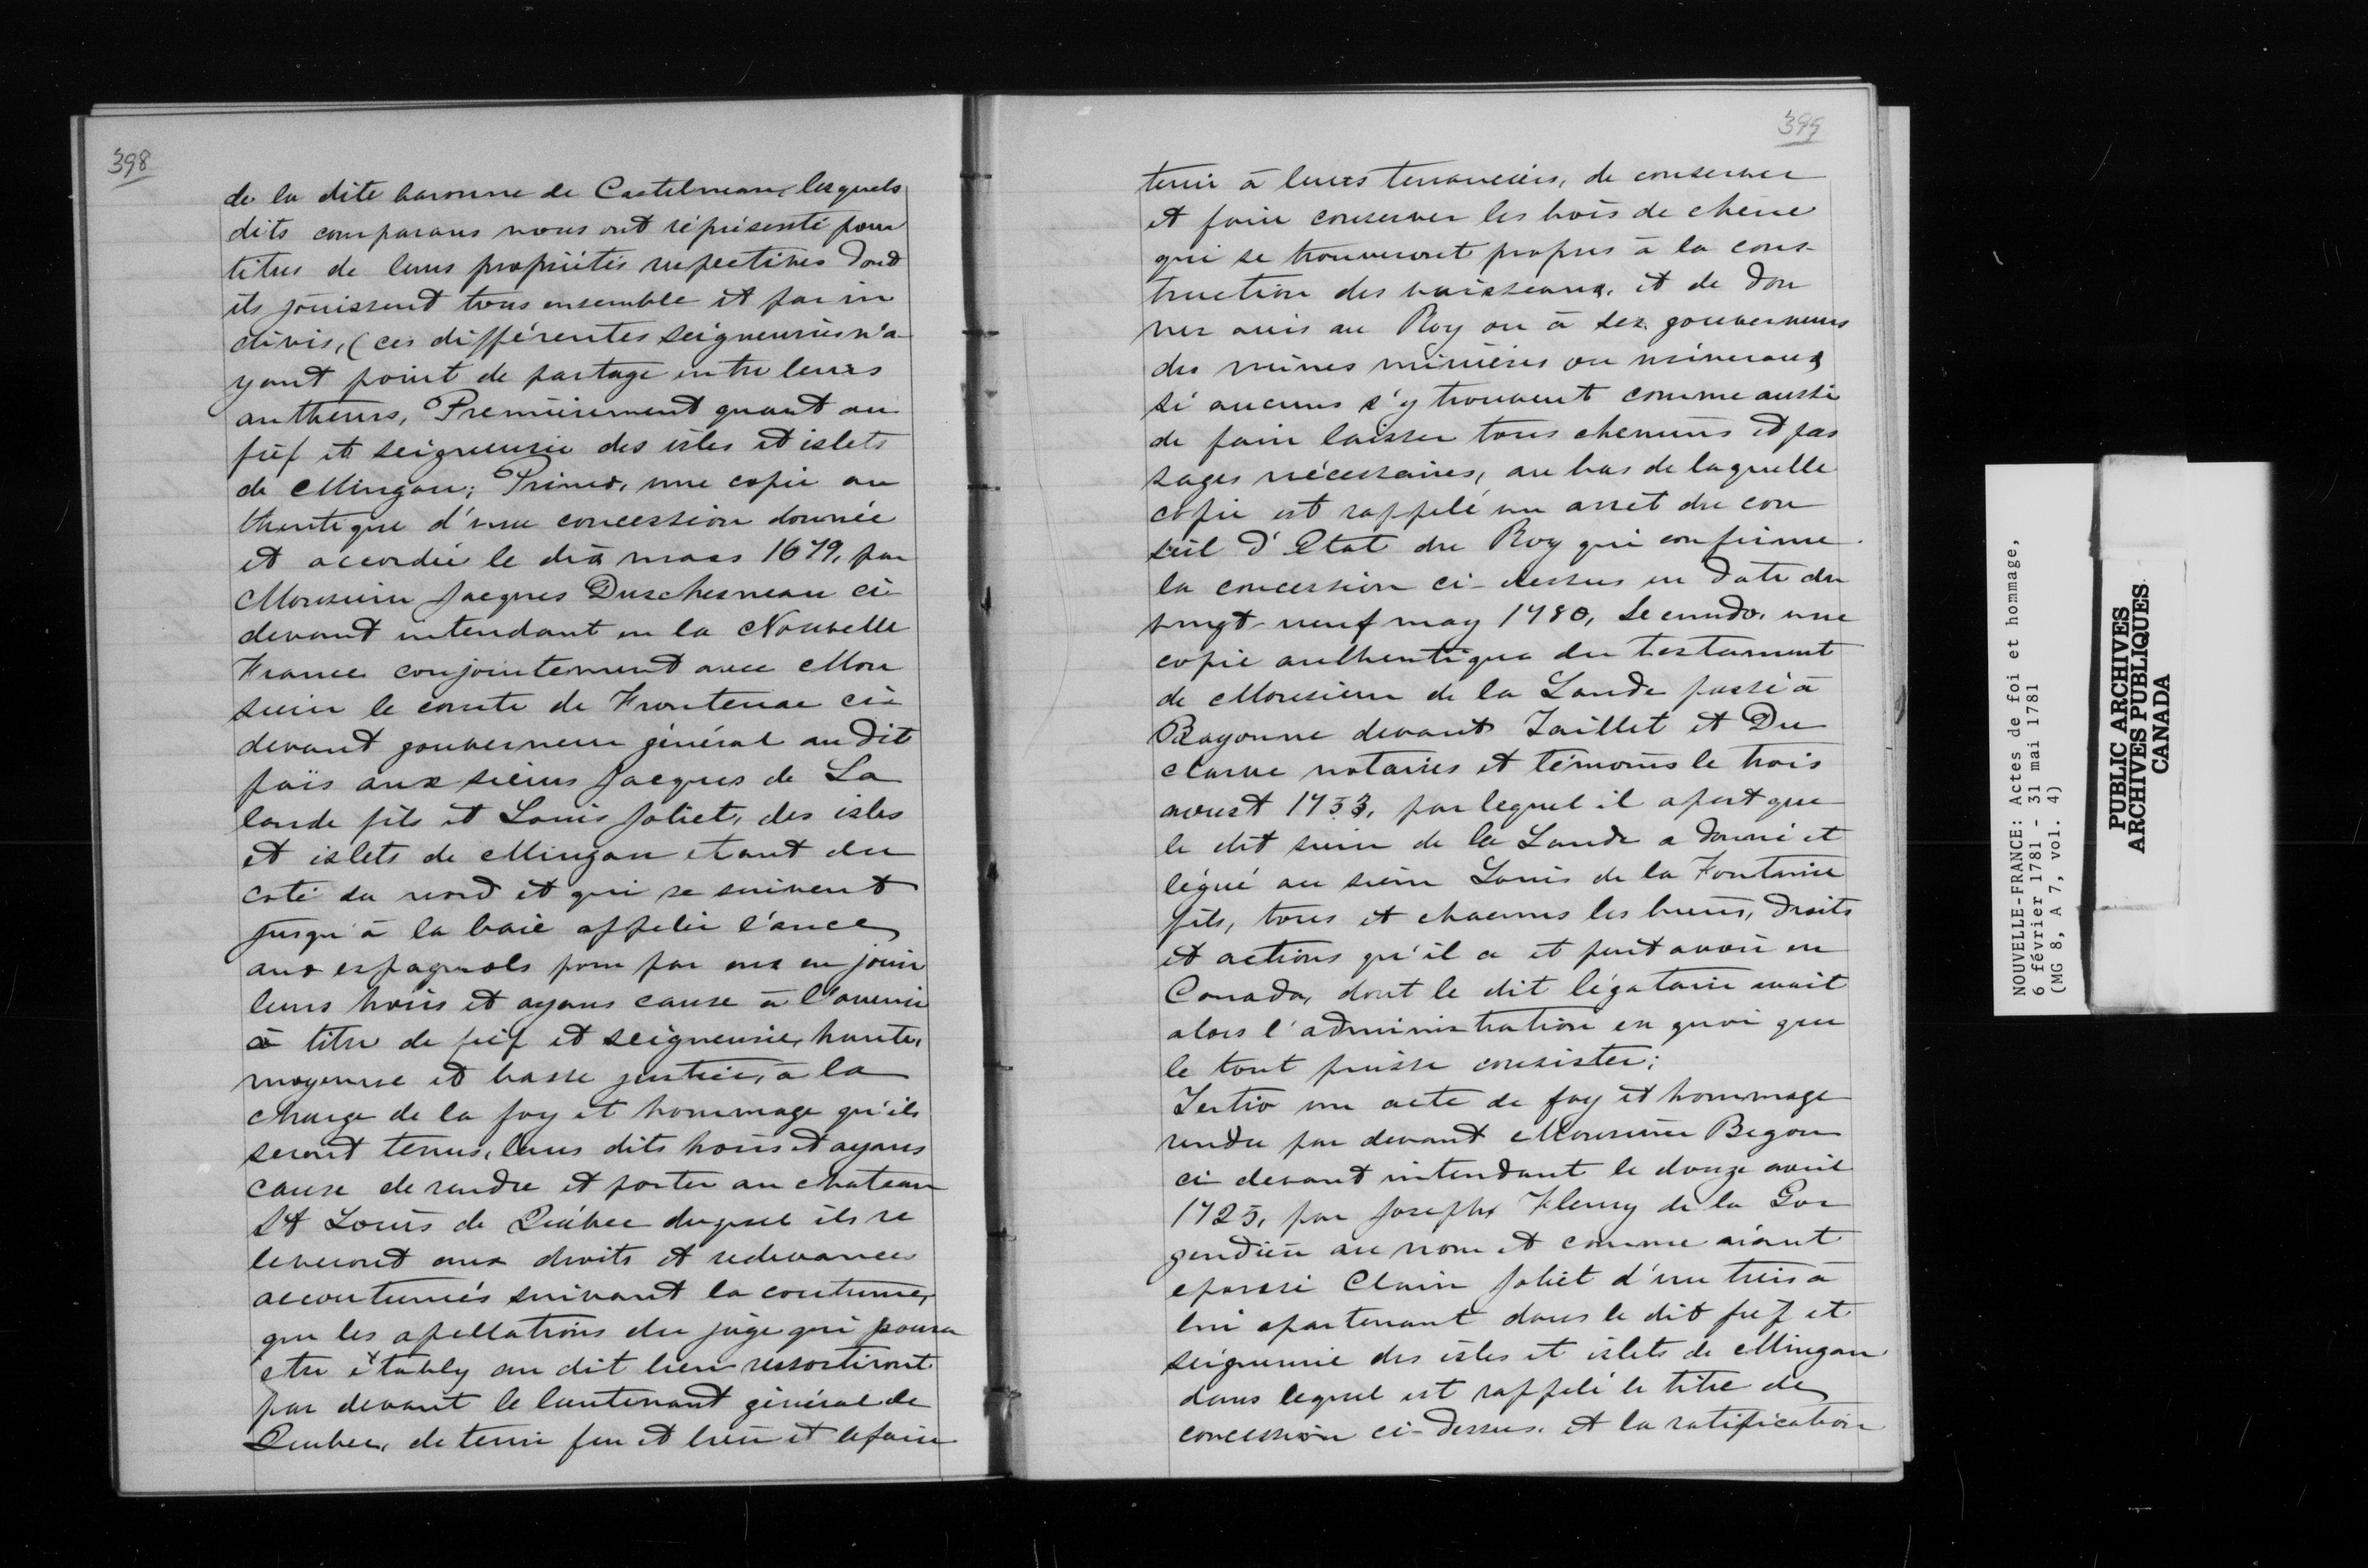 398
de la dite baronne de Castelneau, lesquels
dits comparans nous ont réprésenté pour
titres de leurs propriétés respectives dont
ils jouissent tous ensemble et par in
divis, (ces différentes seigneuries n'a-
yant point de partage entre leurs
autheurs, Premièrement quant au
fief et seigneurie des isles et islets
de Mingan; Primo, une copie au
thentique d'une concession donnée
et accordée le dix mars 1679, par
Monsieur Jacques Duschesneau ci-
devant intendant en la Nouvelle
France conjointement avec Mon
sieur le comte de Frontenac ci-
devant gouverneur général au dit
païs aux sieurs Jacques de La
lande fils et Louis Joliet, des isles
et islets de Mingan etant du
coté du nord et qui se suivent
jusqu'à la baie appelée l'ance
aux espagnols pour par eux en jouir
leurs hoirs et ayans cause à l'avenir
à titre de fief et seigneurie, haute,
moyenne et basse justice, à la
charge de la foy et hommage qu'ils
seront tenus, leurs dits hoirs et ayans
cause de rendre et porter au chateau
St Louis de Québec duquel ils re
leveront aux droits et redevances
accoutumés suivant la coutume,
que les apellations du juge qui poura
etre établ​y au dit lieu ressortiront
par devant le lieutenant général de
Quebec, de tenir feu et lieu et le faire
399
tenir à leurs tenanciers, de conserver
et faire conserver les bois de chene
qui se trouveront propres à la cons-
truction des vaisseaux, et de don
ner avis au Roy ou à ses gouverneurs
des mines minières ou mineraux
si aucuns s'y trouvent comme aussi
de faire laisser tous chemins et pas
sages nécessaires, au bas de laquelle
copie est rappelé un arret du con
seil d'Etat du Roy qui confirme
la concession ci-dessus en date du
vingt-neuf may 1780, Secundo, une
copie authentique du testament
de Monsieur de la Lande passé à
Bayonne devant Taillet et Du
clarne notaires et témoins le trois
avoust 1733, par lequel il apert que
le dit sieur de la Lande a donné et
légué au sieur Louis de la Fontaine
fils, tous et chacuns les biens, droits
et actions qu'il a et peut avoir en
Canada, dont le dit légataire avait
alors l'administration en quoi que
le tout puisse consister;
Tertio un acte de foy et hommage
rendu par devant Monsieur Begon
ci-devant intendant le douze avril
1725, par Joseph Fleury de la Gor
gendière au nom et comme aiant
epousé Claire Joliet d'un tiers à
lui apartenant dans le dit fief et
seigneurie des isles et islets de Mingan
dans lequel est rappelé le titre de
concession ci-dessus, et la ratification
NOUVELLE-FRANCE: Actes de foi et hommage,
6 février 1781 - 31 mai 1781
(MG 8, A 7, vol. 4)
PUBLIC ARCHIVES
ARCHIVES PUBLIQUES
CANADA